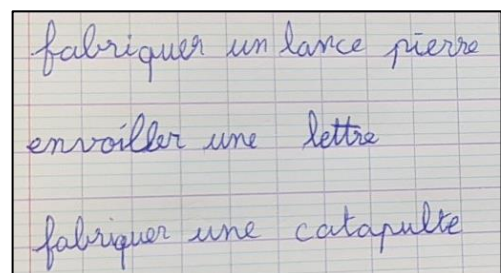 fabriquer un lance pierre
envoiller une lettre
fabriquer une catapulte